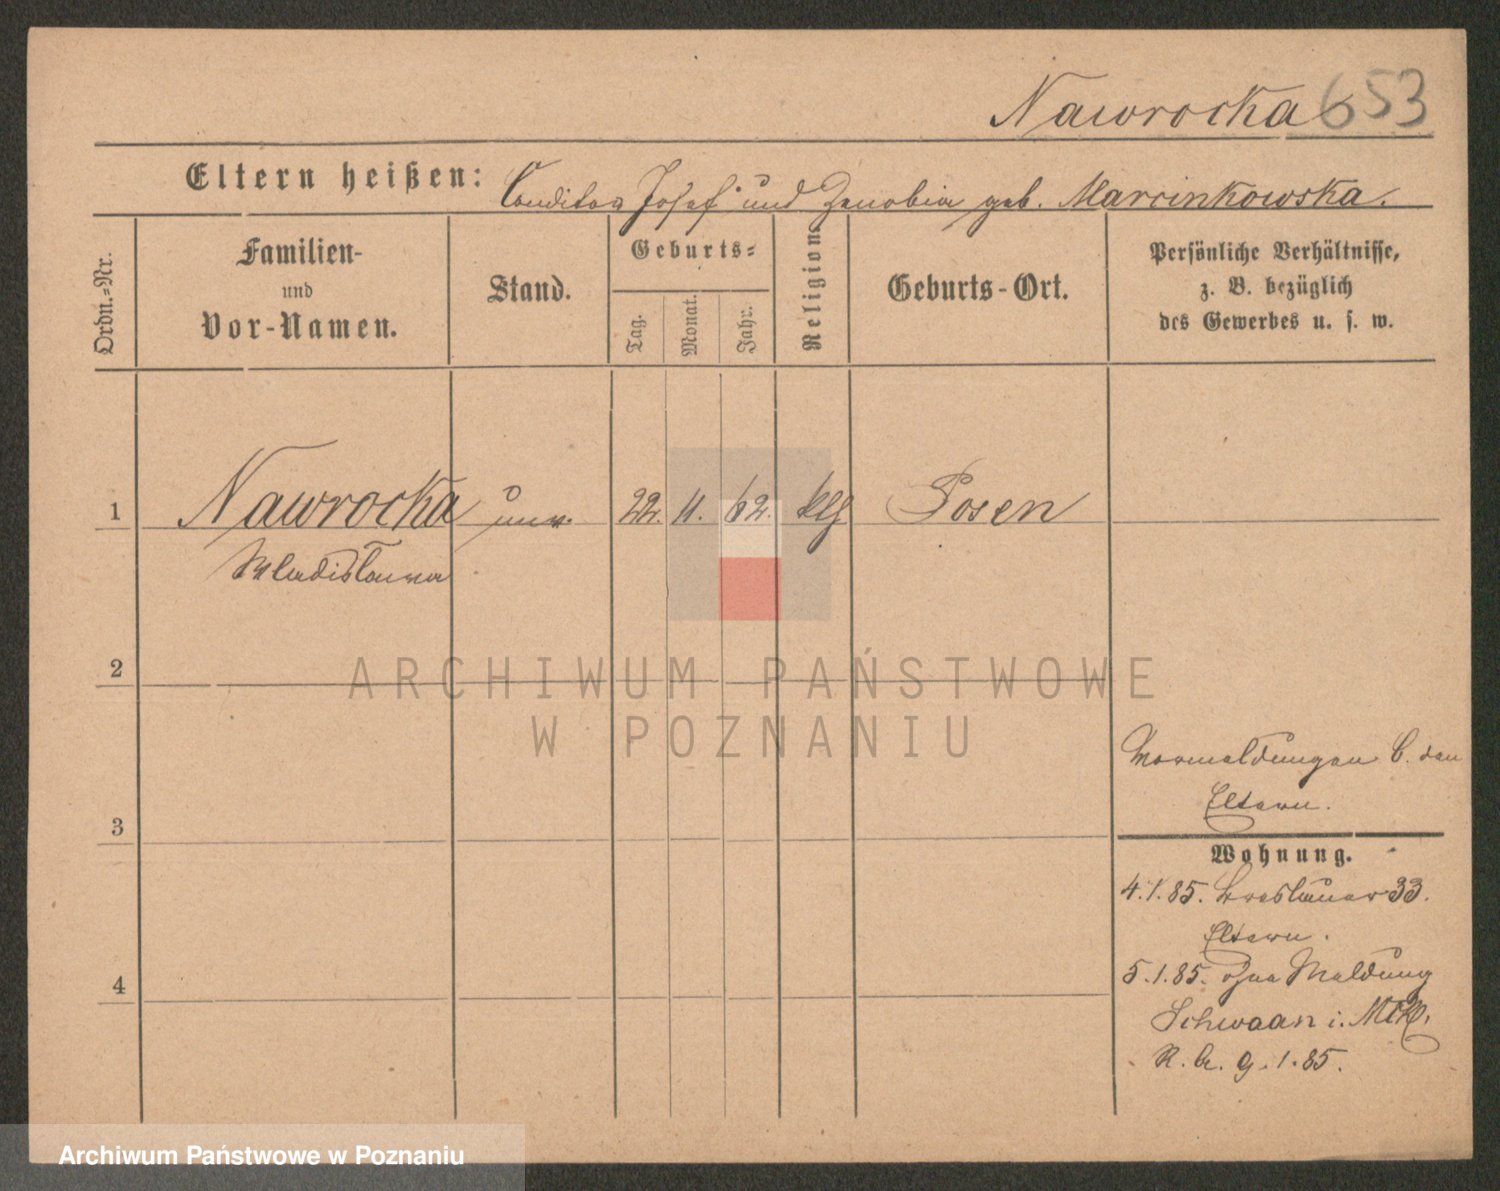 Nawrocka 653
Eltern heißen: Conditor Josef und Zenobia geb. Marcinkowska.
Ordn.=Nr.
Familien-
und
Vor-Namen.
Stand.
Geburts=
Tag.
Monat.
Jahr.
Religion
Geburts-Ort.
Persönliche Verhältnisse,
z. B. bezüglich
des Gewerbes u. s. w.
1 Nawrocka unv. 22. 11. 62. klg Posen
Wladislawa
2
ARCHIWUM PAŃSTWOWE
W POZNANIU
Vormeldungen b. den
Eltern.
3
Wohnung.
4.1.85. Breslauer 33.
Eltern.
4
5.1.85. ohne Meldung
Schwaan i. Mckl.
R. A. 9.1.85.
Archiwum Państwowe w Poznaniu